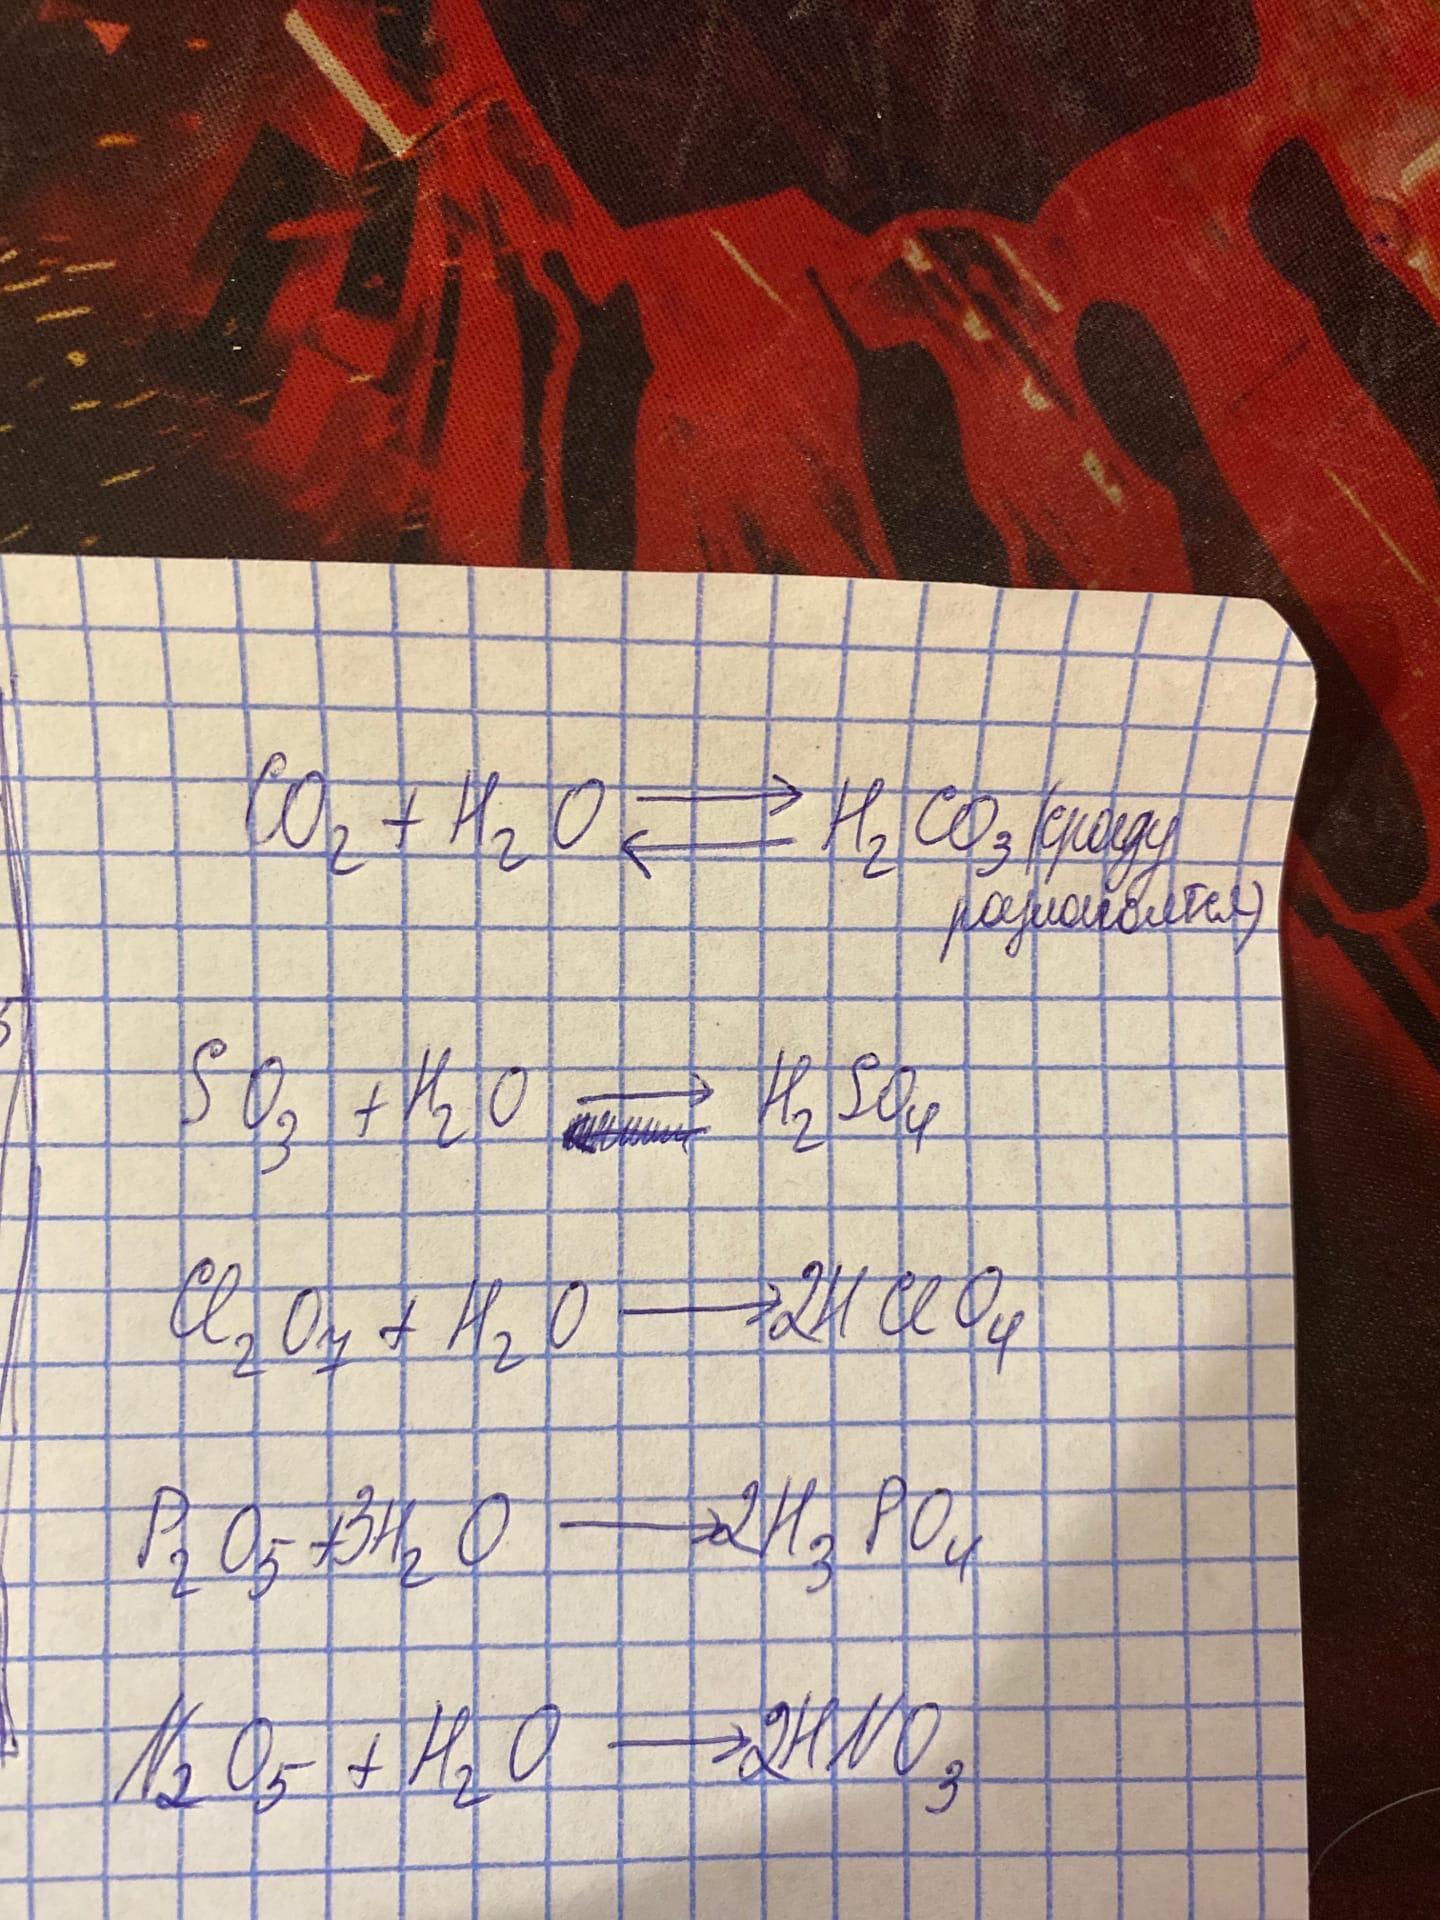 CO₂ + H₂O ⇄ H₂CO₃ (сразу
разлагается)
SO₃ + H₂O → H₂SO₄
Cl₂O₇ + H₂O → 2HClO₄
P₂O₅ + 3H₂O → 2H₃PO₄
N₂O₅ + H₂O → 2HNO₃